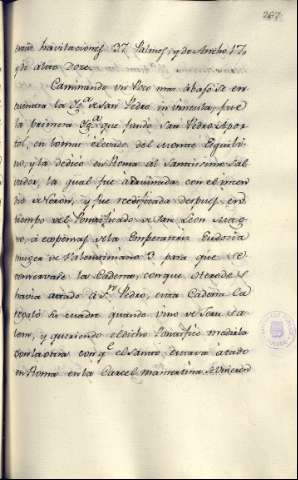 267
estas havitaciones 37. Palmos, y de Ancho 17.
y de altura Doze.
Caminando un Poco mas abajo se en-
cuentra la Yg.ª de San Pedro in vincula, fue
la primera Yg.ª que fundó San Pedro Apos-
tol, en lo mas elevado del Monte Equili-
no, y la dedicó en Roma al Santissimo Sal-
vador, la qual fue arruinada con el incen-
dio de Neron, y fue reedificada despues en
tiempo del Pontificado de San Leon Mag-
no, à expensas de la Emperatriz Eudoxia
muger de Valentiniano 3. para que se
conservase la Cadena, con que Herodes
havia atado à S.n Pedro, esta Cadena la
regaló la cuadre quando vino de Jerusa-
lem, y queriendo el dicho Pontifice medirla
con la otra con q.e el Santo estava atado
en Roma en la Carcel Mamertina se unieron